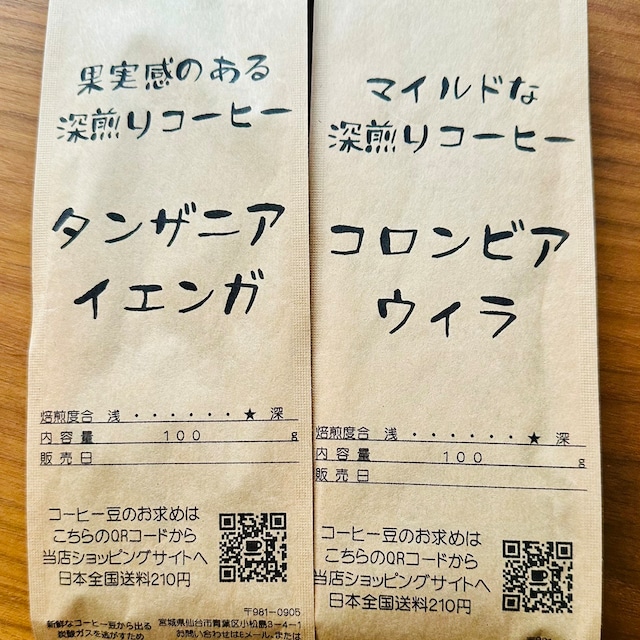 果実感のある
深煎りコーヒー
タンザニア
イエンガ
焙煎度合 浅 ・・・・・・★ 深
内容量 100 g
販売日
コーヒー豆のお求めは
こちらのQRコードから
当店ショッピングサイトへ
日本全国送料210円
〒981-0905
新鮮なコーヒー豆から出る
宮城県仙台市青葉区小松島3-4-1
炭酸ガスを逃がすため
お問い合わせはEメール、または
マイルドな
深煎りコーヒー
コロンビア
ウィラ
焙煎度合 浅 ・・・・・・★ 深
内容量 100 g
販売日
コーヒー豆のお求めは
こちらのQRコードから
当店ショッピングサイトへ
日本全国送料210円